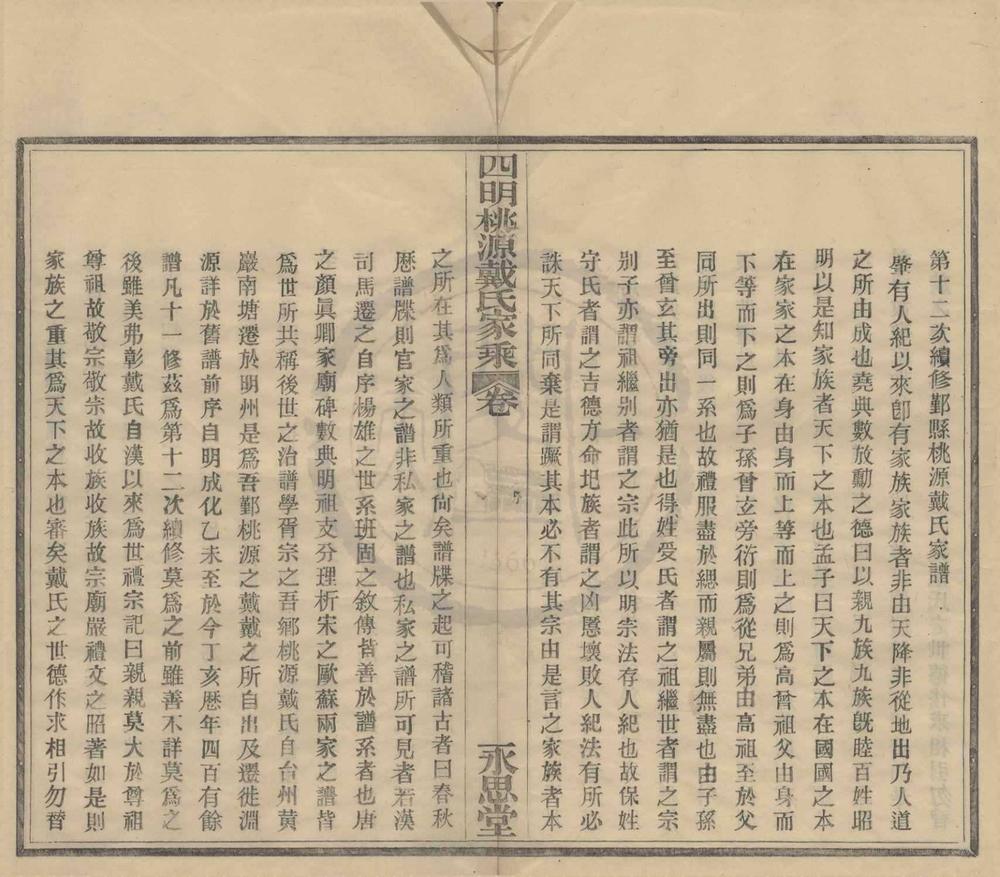 第十二次續修鄞縣桃源戴氏家譜
肇有人紀以來卽有家族家族者非由天降非從地出乃人道
之所由成也堯典數放勳之德曰以親九族九族旣睦百姓昭
明以是知家族者天下之本也孟子曰天下之本在國國之本
在家家之本在身由身而上等而上之則爲高曾祖父由身而
下等而下之則爲子孫曾玄旁衍則爲從兄弟由高祖至於父
同所出則同一系也故禮服盡於緦而親屬則無盡也由子孫
至曾玄其旁出亦猶是也得姓受氏者謂之祖繼世者謂之宗
别子亦謂祖繼别者謂之宗此所以明宗法存人紀也故保姓
守氏者謂之吉德方命圯族者謂之凶慝壞敗人紀法有所必
誅天下所同棄是謂蹶其本必不有其宗由是言之家族者本
四明桃源戴氏家乘
卷
永思堂
之所在其爲人類所重也尙矣譜牒之起可稽諸古者曰春秋
厯譜牒則官家之譜非私家之譜也私家之譜所可見者若漢
司馬遷之自序楊雄之世系班固之敘傳皆善於譜系者也唐
之顏眞卿家廟碑數典明祖支分理析宋之歐蘇兩家之譜皆
爲世所共稱後世之治譜學胥宗之吾鄉桃源戴氏自台州黃
巖南塘遷於明州是爲吾鄞桃源之戴戴之所自出及遷徙淵
源詳於舊譜前序自明成化乙未至於今丁亥厯年四百有餘
譜凡十一修茲爲第十二次續修莫爲之前雖善不詳莫爲之
後雖美弗彰戴氏自漢以來爲世禮宗記曰親親莫大於尊祖
尊祖故敬宗敬宗故收族收族故宗廟嚴禮文之昭著如是則
家族之重其爲天下之本也審矣戴氏之世德作求相引勿替